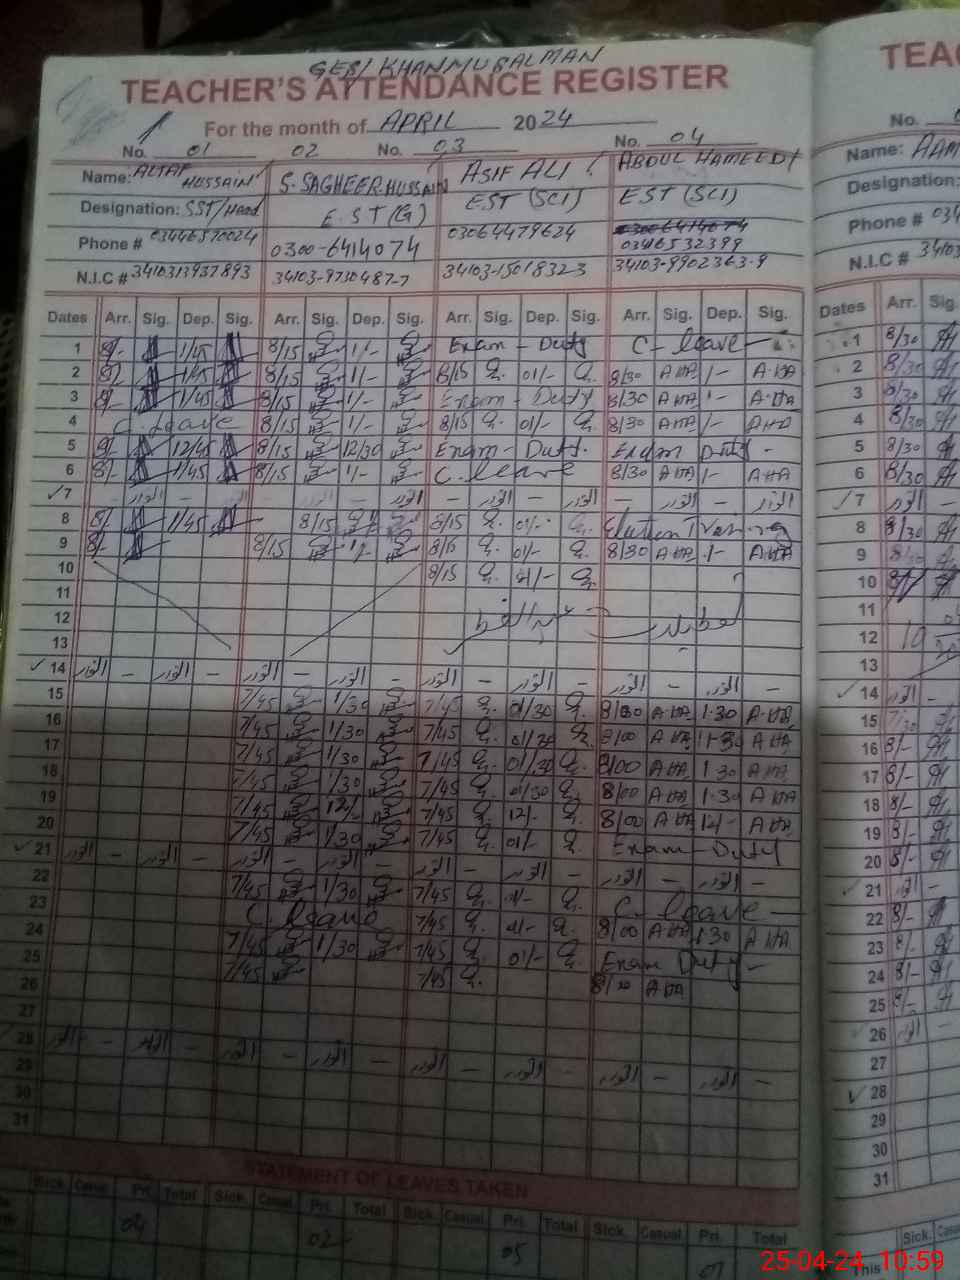 GEBI KHANMURALMAN
TEACHER'S ATTENDANCE REGISTER
For the month of APRIL 2024
No. 01 02 No. 03 No. 04
Name: ALTAF HUSSAIN S. SAGHEER HUSSAIN ASIF ALI ABDUL HAMEED
Designation: SST/Head E.S T(G) EST (SCI) EST (SCI)
Phone # 03446570024 0300-6414074 03064479624 03006414074 03465532399
N.I.C # 3410313937893 34103-9730487-7 34103-15018323 34103-9902363-9
Dates Arr. Sig. Dep. Sig. Arr. Sig. Dep. Sig. Arr. Sig. Dep. Sig. Arr. Sig. Dep. Sig.
1 8/- 1/45 8/15 1/- Exam - Duty C. leave -
2 8/- 1/45 8/15 1/- 8/15 01/- 8/30 A HA 1- A-HA
3 8/- 1/45 8/15 1/- Exam - Duty 8/30 A HA 1- A-HA
4 C. Leave 8/15 1/- 8/15 01/- 8/30 A HA 1- A HA
5 8/- 12/45 8/15 12/30 Exam - Duty. Exam Duty -
6 8/- 1/45 8/15 1/- C. leave 8/30 A HA 1- A HA
7 - اتوار - اتوار - اتوار - اتوار - اتوار - اتوار
8 8/- 1/45 8/15 8/15 01/- Election Training
9 8/- 8/15 1/- 8/15 01/- 8/30 A HA 1- A HA
10 8/15 01/-
11
12 عیدالفطر تعطیلات
13
14 اتوار - اتوار - اتوار - اتوار - اتوار - اتوار - اتوار - اتوار -
15 7/45 1/30 7/45 01/30 8/00 A HA 1.30 A-HA
16 7/45 1/30 7/45 01/30 8/00 A HA 1-30 A HA
17 7/45 1/30 7/45 01/30 8/00 A HA 1 30 A HA
18 7/45 1/30 7/45 01/30 8/00 A HA 1.30 A HA
19 7/45 12/- 7/45 12/- 8/00 A HA 12/- A HA
20 7/45 1/30 7/45 01/- Exam - Duty
21 اتوار - اتوار - اتوار - اتوار - اتوار - اتوار - اتوار - اتوار -
22 7/45 1/30 7/45 01/- C. leave -
23 C. leave 7/45 01/- 8/00 A HA 1.30 A HA
24 7/45 1/30 7/45 01/- Exam Duty -
25 7/45 7/45 A HA
26
27
28 اتوار - اتوار - اتوار - اتوار - اتوار - اتوار - اتوار - اتوار -
29
30
31
STATEMENT OF LEAVES TAKEN
Sick. Casual. Pri. Total Sick. Casual. Pri. Total Sick. Casual. Pri. Total Sick. Casual. Pri. Total
04 02 05 07
TEAC
No.
Name: AAM
Designation:
Phone # 034
N.I.C # 3410
Dates Arr. Sig.
1 8/30
2 8/30
3 8/30
4 8/30
5 8/30
6 8/30
7 اتوار
8 8/30
9 8/30
10
11
12
13
14 اتوار -
15 7/30
16 8/-
17 8/-
18 8/-
19 8/-
20 8/-
21 اتوار -
22 8/-
23 8/-
24 8/-
25 8/-
26 اتوار -
27
28
29
30
31
Sick. Casual
This
25-04-24 10:59